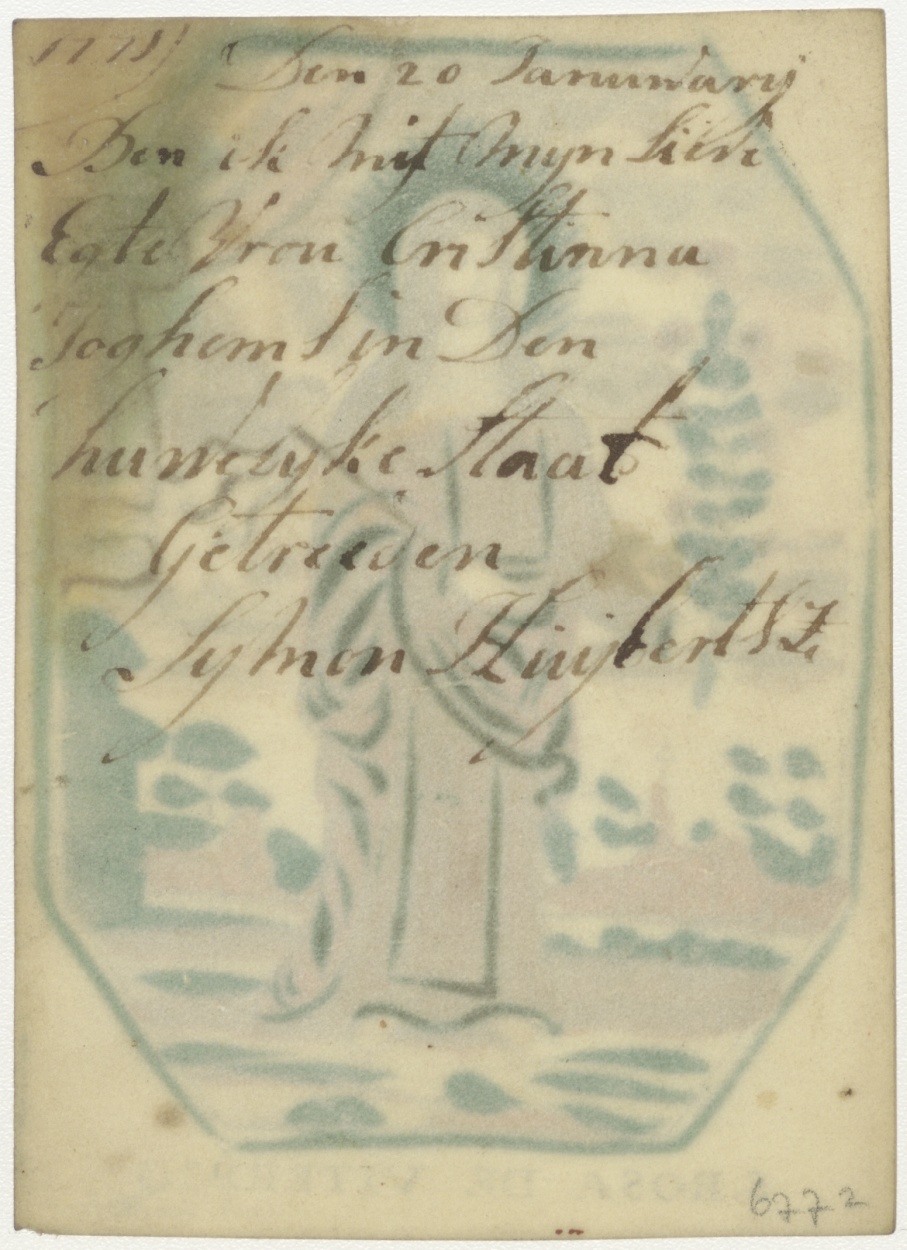 1771) Den 20 Januwarij
Ben ik Mijt Mijn Lieve
Egte Vrou Cristinna
Joghems in Den
huwelyke Staat
Getreeden
Sijmon Huijberts Z.
ROSA DE VITER
6772